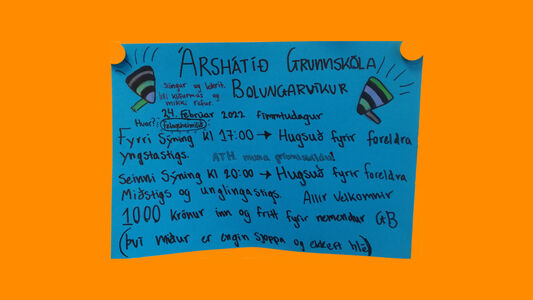 ÁRSHÁTÍÐ GRUNNSKÓLA
BOLUNGARVÍKUR
Söngur og leikrit.
Litli kúturmús og
mikki refur.
24. Februar 2022 Fimmtudagur
Hvar?: Felagsheimilið
Fyrri Sýning kl 17:00 → Hugsuð fyrir foreldra
yngstastigs. ATH. muna grímuskildu!
Seinni Sýning Kl 20:00 → Hugsuð fyrir foreldra
Miðstigs og unglingastigs. Allir Velkomnir
1000 Krónur inn og frítt fyrir nemendur GB
(Því miður er engin sjoppa og ekkert hlé)